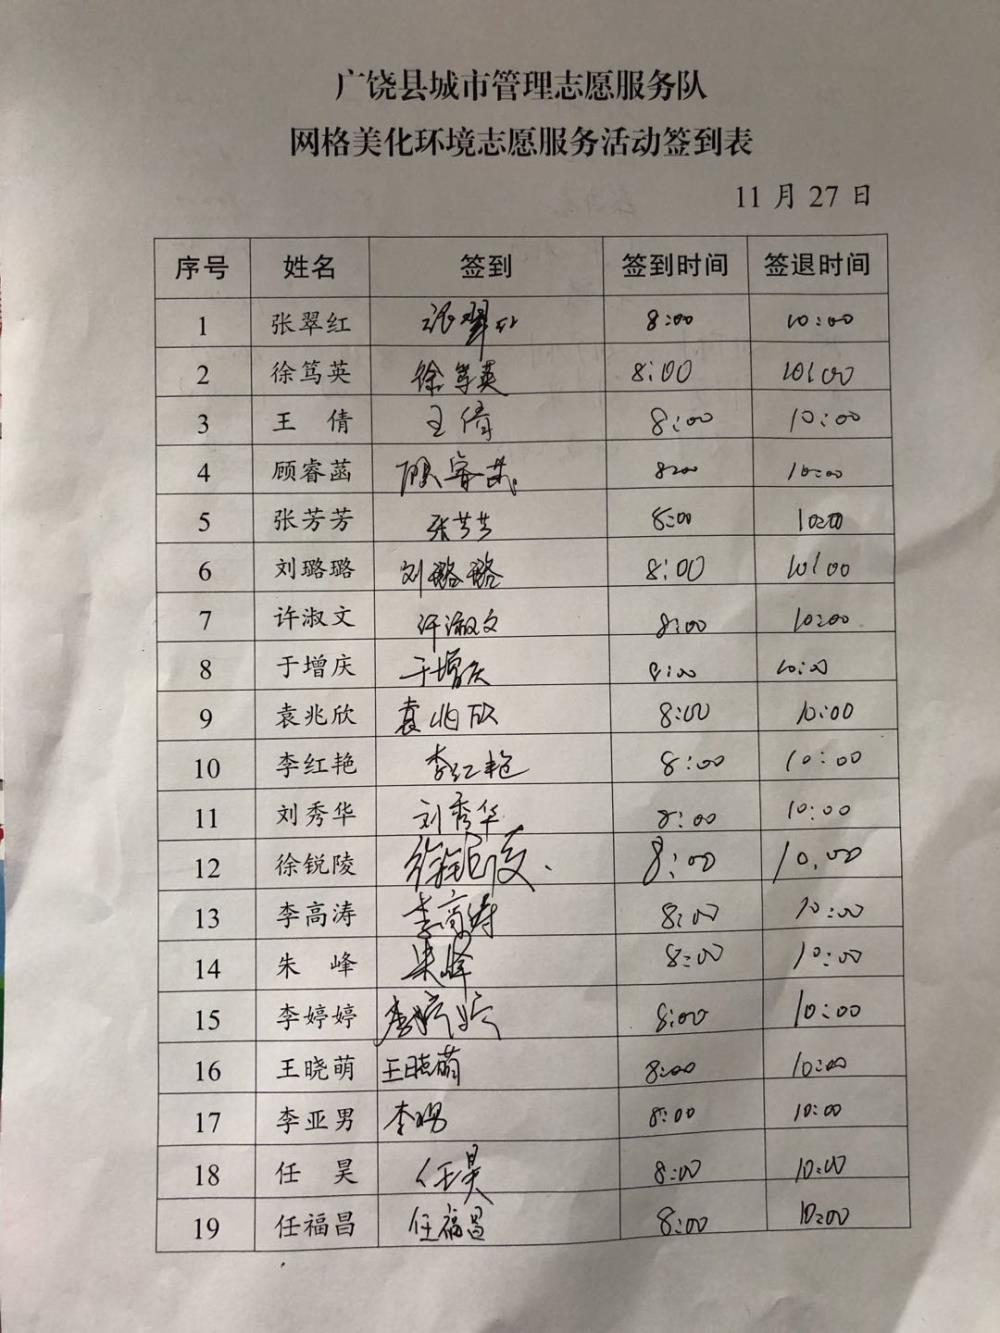 广饶县城市管理志愿服务队
网格美化环境志愿服务活动签到表
11 月 27 日
序号 姓名 签到 签到时间 签退时间
1 张翠红 张翠红 8:00 10:00
2 徐笃英 徐笃英 8:00 10:00
3 王 倩 王倩 8:00 10:00
4 顾睿菡 顾睿菡 8:00 10:00
5 张芳芳 张芳芳 8:00 10:00
6 刘璐璐 刘璐璐 8:00 10:00
7 许淑文 许淑文 8:00 10:00
8 于增庆 于增庆 8:00 10:00
9 袁兆欣 袁兆欣 8:00 10:00
10 李红艳 李红艳 8:00 10:00
11 刘秀华 刘秀华 8:00 10:00
12 徐锐陵 徐锐陵 8:00 10:00
13 李高涛 李高涛 8:00 10:00
14 朱 峰 朱峰 8:00 10:00
15 李婷婷 李婷婷 8:00 10:00
16 王晓萌 王晓萌 8:00 10:00
17 李亚男 李亚男 8:00 10:00
18 任 昊 任昊 8:00 10:00
19 任福昌 任福昌 8:00 10:00